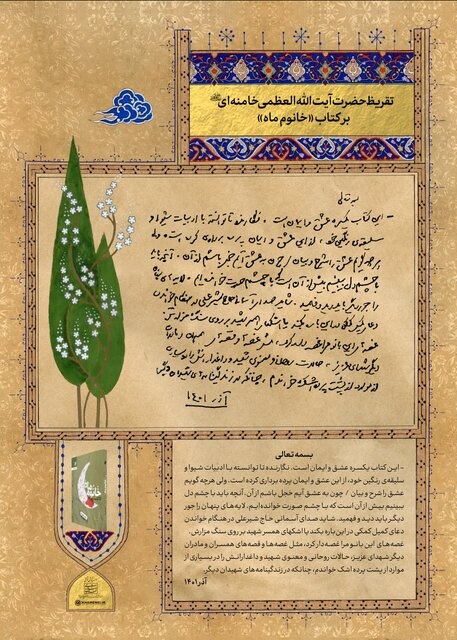 تقریظ حضرت آیت‌الله العظمی خامنه‌ای
بر کتاب «خانوم ماه»
بسمه تعالی
- این کتاب یکسره عشق و ایمان است. نگارنده تا توانسته با ادبیات شیوا و
سلیقه‌ی رنگین خود، از این عشق و ایمان پرده برداری کرده است. ولی هرچه گویم
عشق را شرح و بیان / چون به عشق آیم خجل باشم از آن. آنچه باید با چشم دل
ببینیم بیش از آن است که با چشم صورت خوانده‌ایم. لایه‌های پنهان را جور
دیگر باید دید و فهمید. شاید صدای آسمانی حاج شیرعلی در هنگام خواندن
دعای کمیل کمکی در این باره بکند یا اشکهای همسر شهید بر روی سنگ مزارش.
غصه‌های این بانو مرا غصه‌دار کرد، مثل غصه‌ها و قصه‌های همسران و مادران
دیگر شهدای عزیز. حالات روحانی و معنوی شهید و داغدارانش را در بسیاری از
موارد از پشت پرده اشک خواندم، چنانکه در زندگینامه‌های شهیدان دیگر.
آذر ۱۴۰۱
KHAMENEI.IR